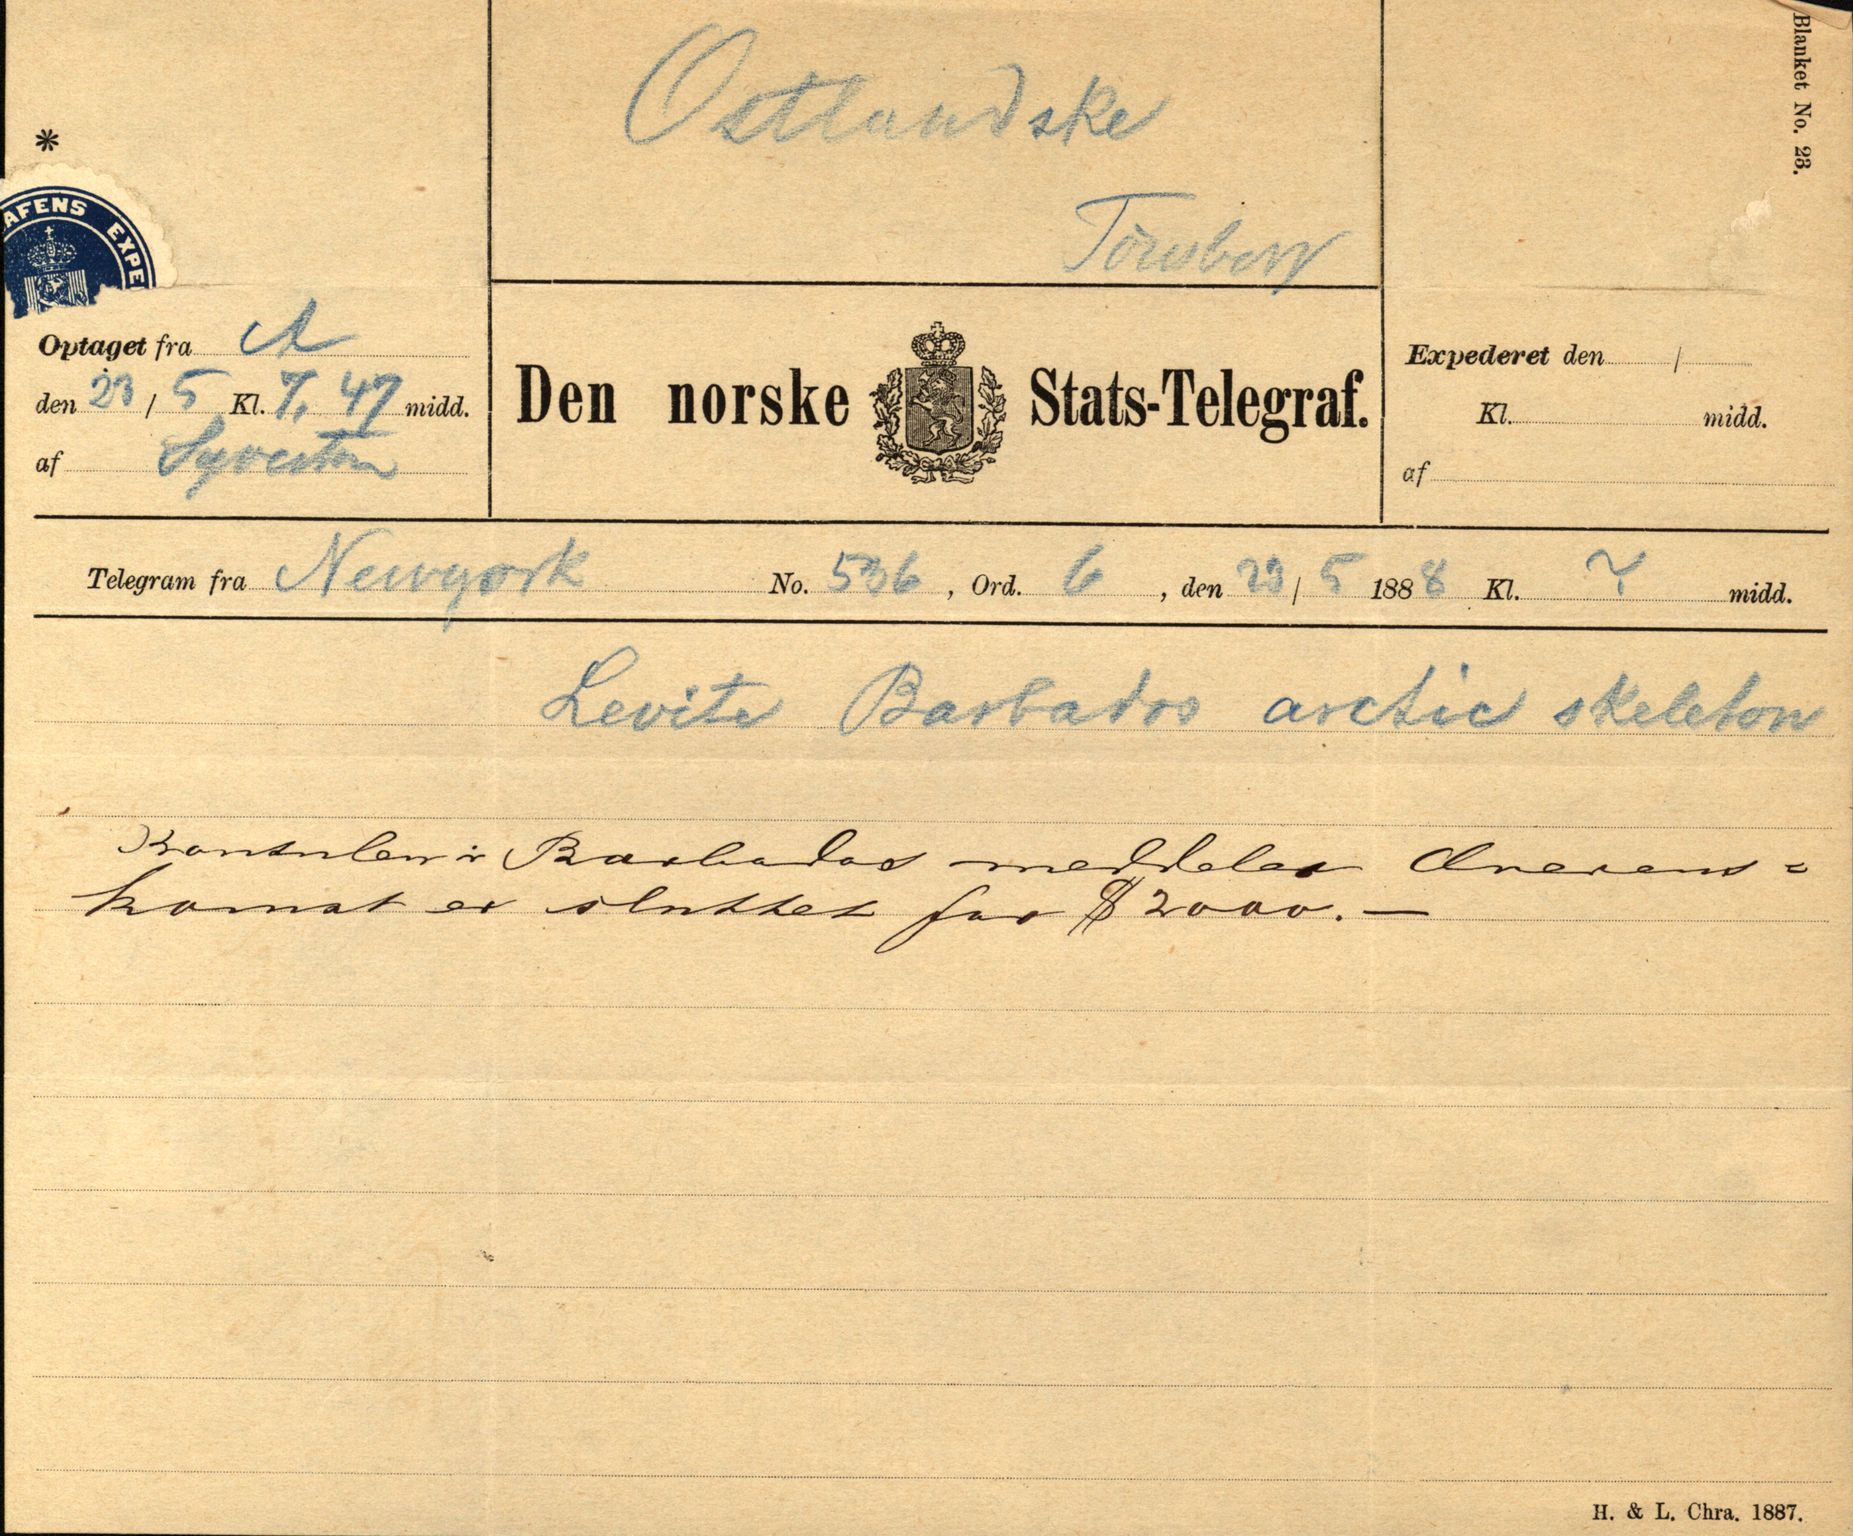 Blanket No. 23.
*
Ostlandske
Tönsberg
AFENS EXPE
Optaget fra A
den 23 / 5 Kl. 7, 47 midd.
af
Den norske Stats-Telegraf.
Expederet den /
Kl. midd.
af
Telegram fra Newyork No. 536, Ord. 6, den 23 / 5 1888 Kl. 7 midd.
Levite Barbados arctic skeleton
Konsulen i Barbados meddeler Overens=
komst er sluttet for $ 2000. —
H. & L. Chra. 1887.